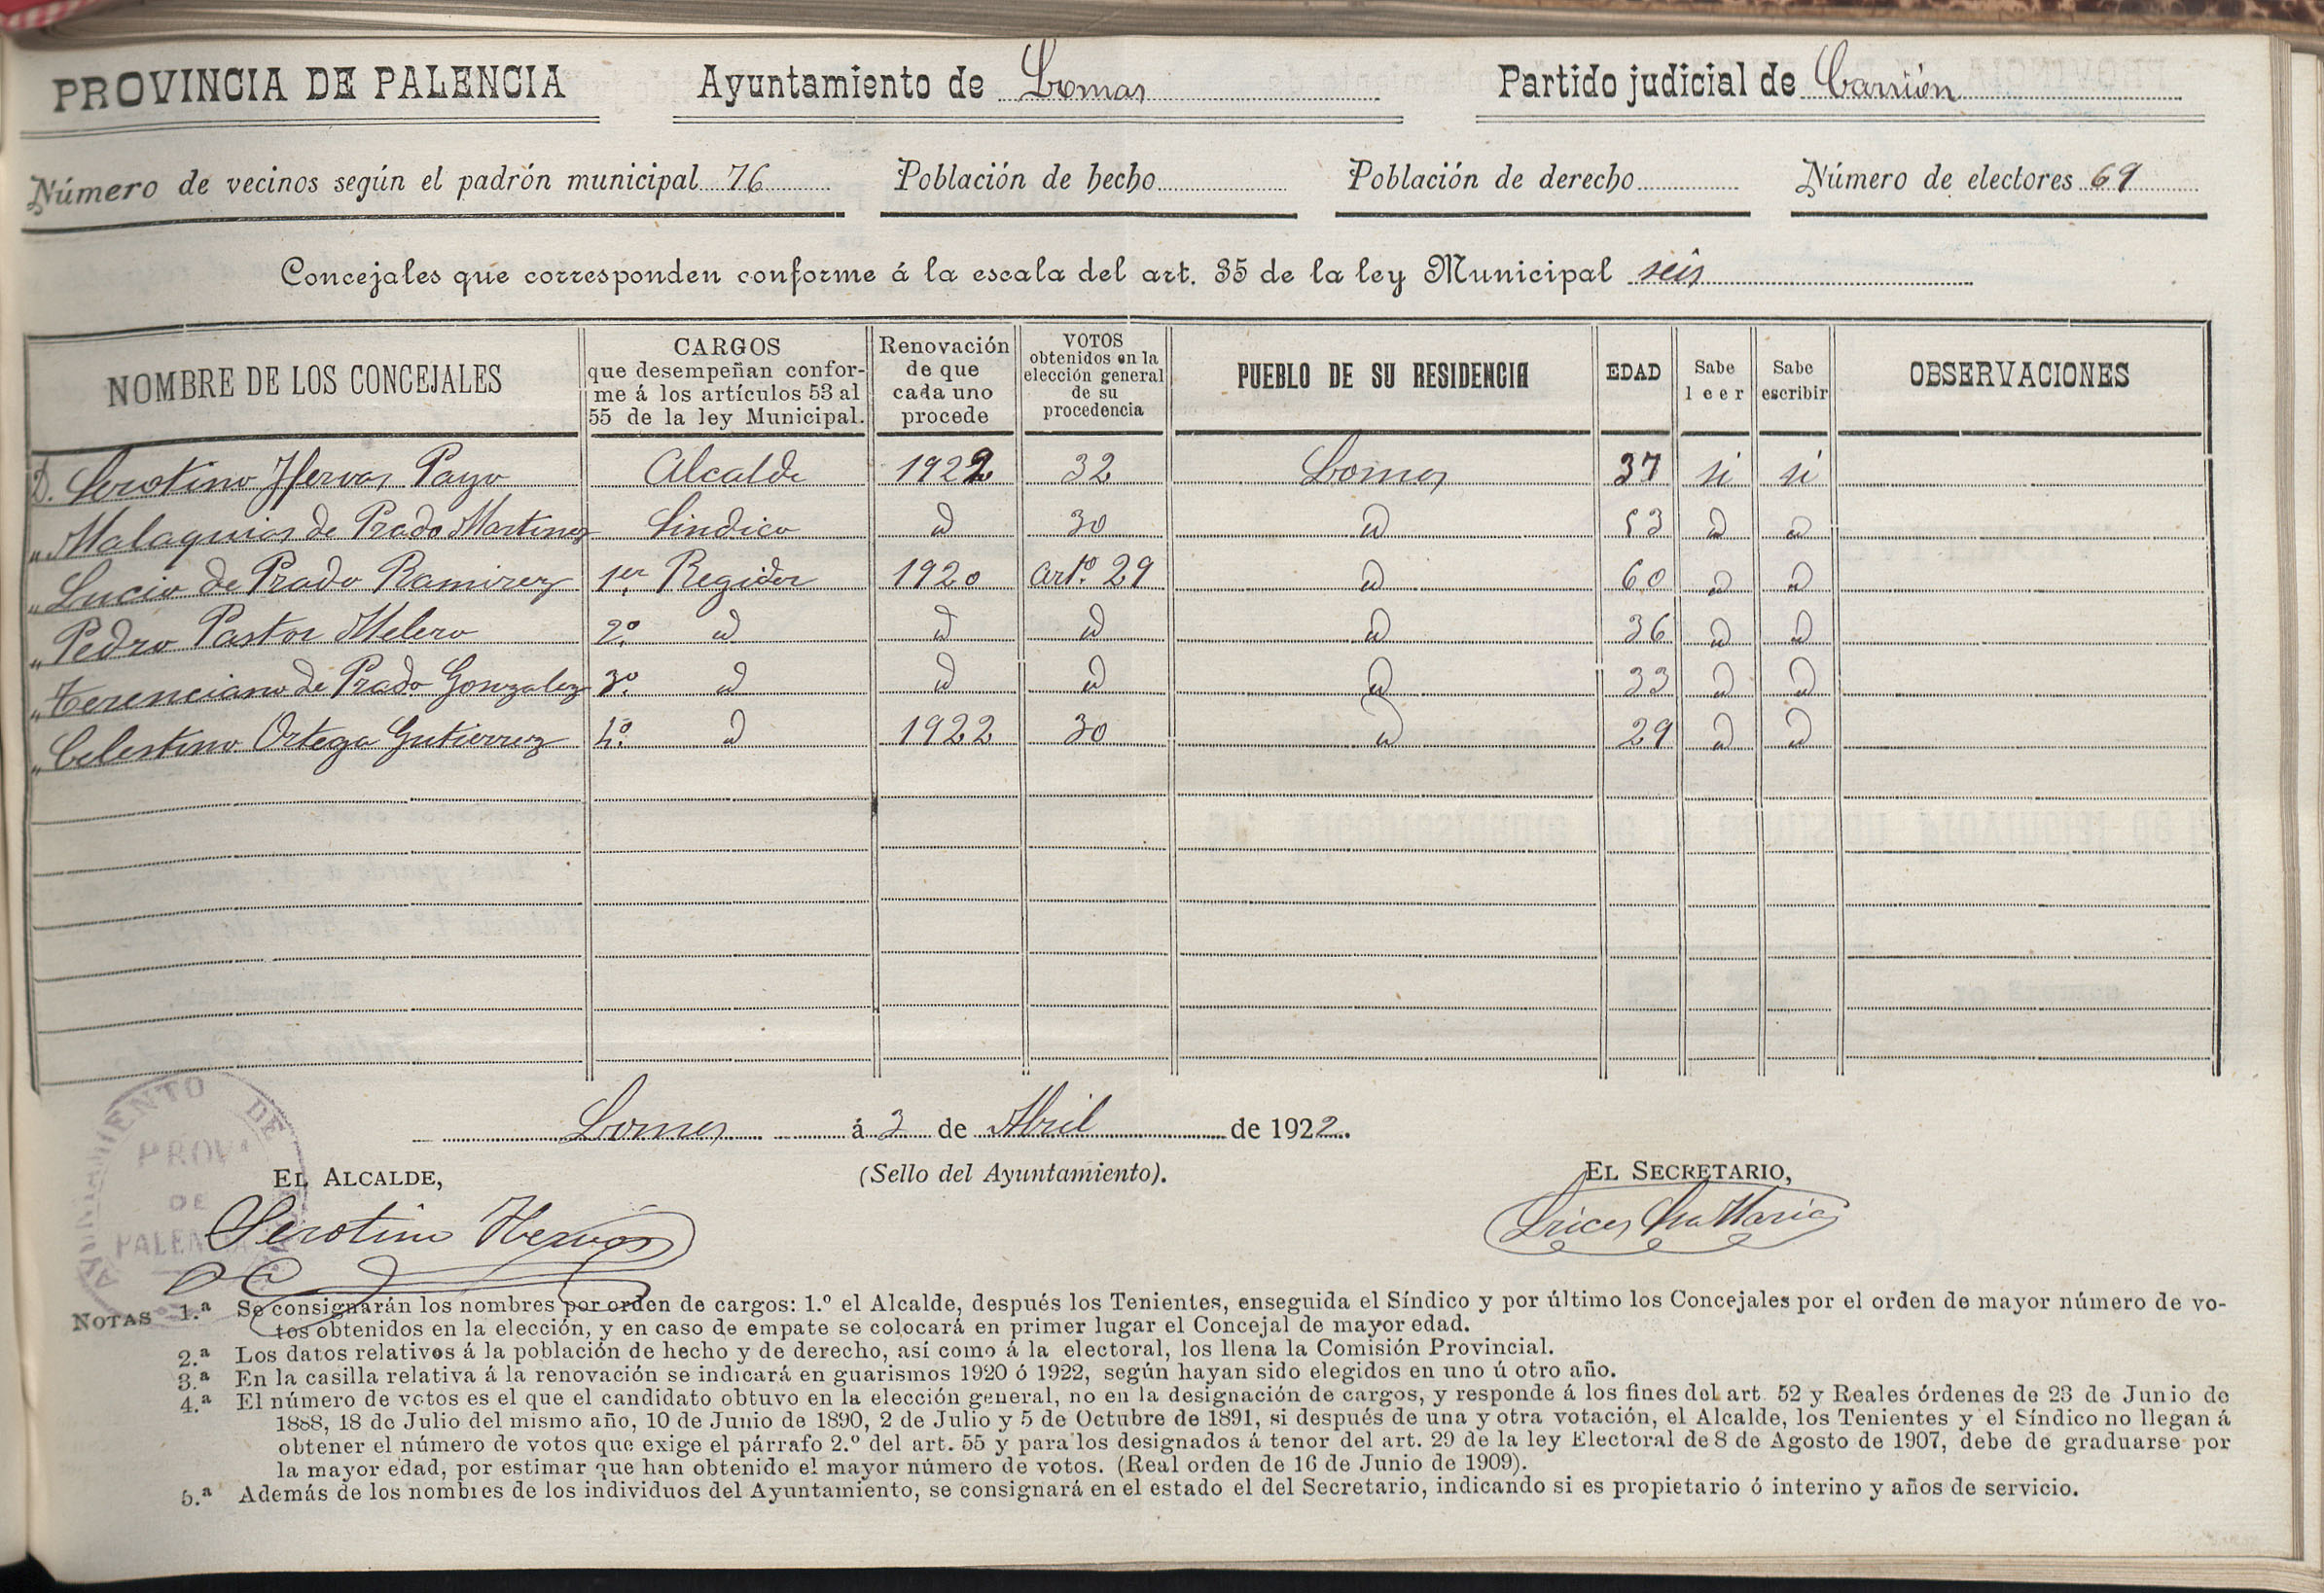 PROVINCIA DE PALENCIA Ayuntamiento de Lomas Partido judicial de Carrión
Número de vecinos según el padrón municipal 76 Población de hecho Población de derecho Número de electores 69
Concejales que corresponden conforme á la escala del art. 35 de la ley Municipal seis
NOMBRE DE LOS CONCEJALES CARGOS que desempeñan confor-me á los artículos 53 al 55 de la ley Municipal. Renovación de que cada uno procede VOTOS obtenidos en la elección general de su procedencia PUEBLO DE SU RESIDENCIA EDAD Sabe leer Sabe escribir OBSERVACIONES
D. Serotino Hervas Payo Alcalde 1922 32 Lomas 37 si si
„ Malaquias de Prado Martinez Sindico id 30 id 53 id id
„ Lucio de Prado Ramirez 1er Regidor 1920 Artº 29 id 60 id id
„ Pedro Pastor Melero 2º id id id id 36 id id
„ Terenciano de Prado Gonzalez 3º id id id id 33 id id
„ Celestino Ortega Gutierrez 4º id 1922 30 id 29 id id
Lomas á 3 de Abril de 1922.
EL ALCALDE, (Sello del Ayuntamiento). EL SECRETARIO,
Serotino Hervás
AYUNTAMIENTO DE
PROVª
DE
PALENCIA
NOTAS 1.ª Se consignarán los nombres por orden de cargos: 1.º el Alcalde, después los Tenientes, enseguida el Síndico y por último los Concejales por el orden de mayor número de vo-
tos obtenidos en la elección, y en caso de empate se colocará en primer lugar el Concejal de mayor edad.
2.ª Los datos relativos á la población de hecho y de derecho, así como á la electoral, los llena la Comisión Provincial.
3.ª En la casilla relativa á la renovación se indicará en guarismos 1920 ó 1922, según hayan sido elegidos en uno ú otro año.
4.ª El número de votos es el que el candidato obtuvo en la elección general, no en la designación de cargos, y responde á los fines del art. 52 y Reales órdenes de 23 de Junio de
1888, 18 de Julio del mismo año, 10 de Junio de 1890, 2 de Julio y 5 de Octubre de 1891, si después de una y otra votación, el Alcalde, los Tenientes y el Síndico no llegan á
obtener el número de votos que exige el párrafo 2.º del art. 55 y para los designados á tenor del art. 29 de la ley Electoral de 8 de Agosto de 1907, debe de graduarse por
la mayor edad, por estimar que han obtenido el mayor número de votos. (Real orden de 16 de Junio de 1909).
5.ª Además de los nombres de los individuos del Ayuntamiento, se consignará en el estado el del Secretario, indicando si es propietario ó interino y años de servicio.